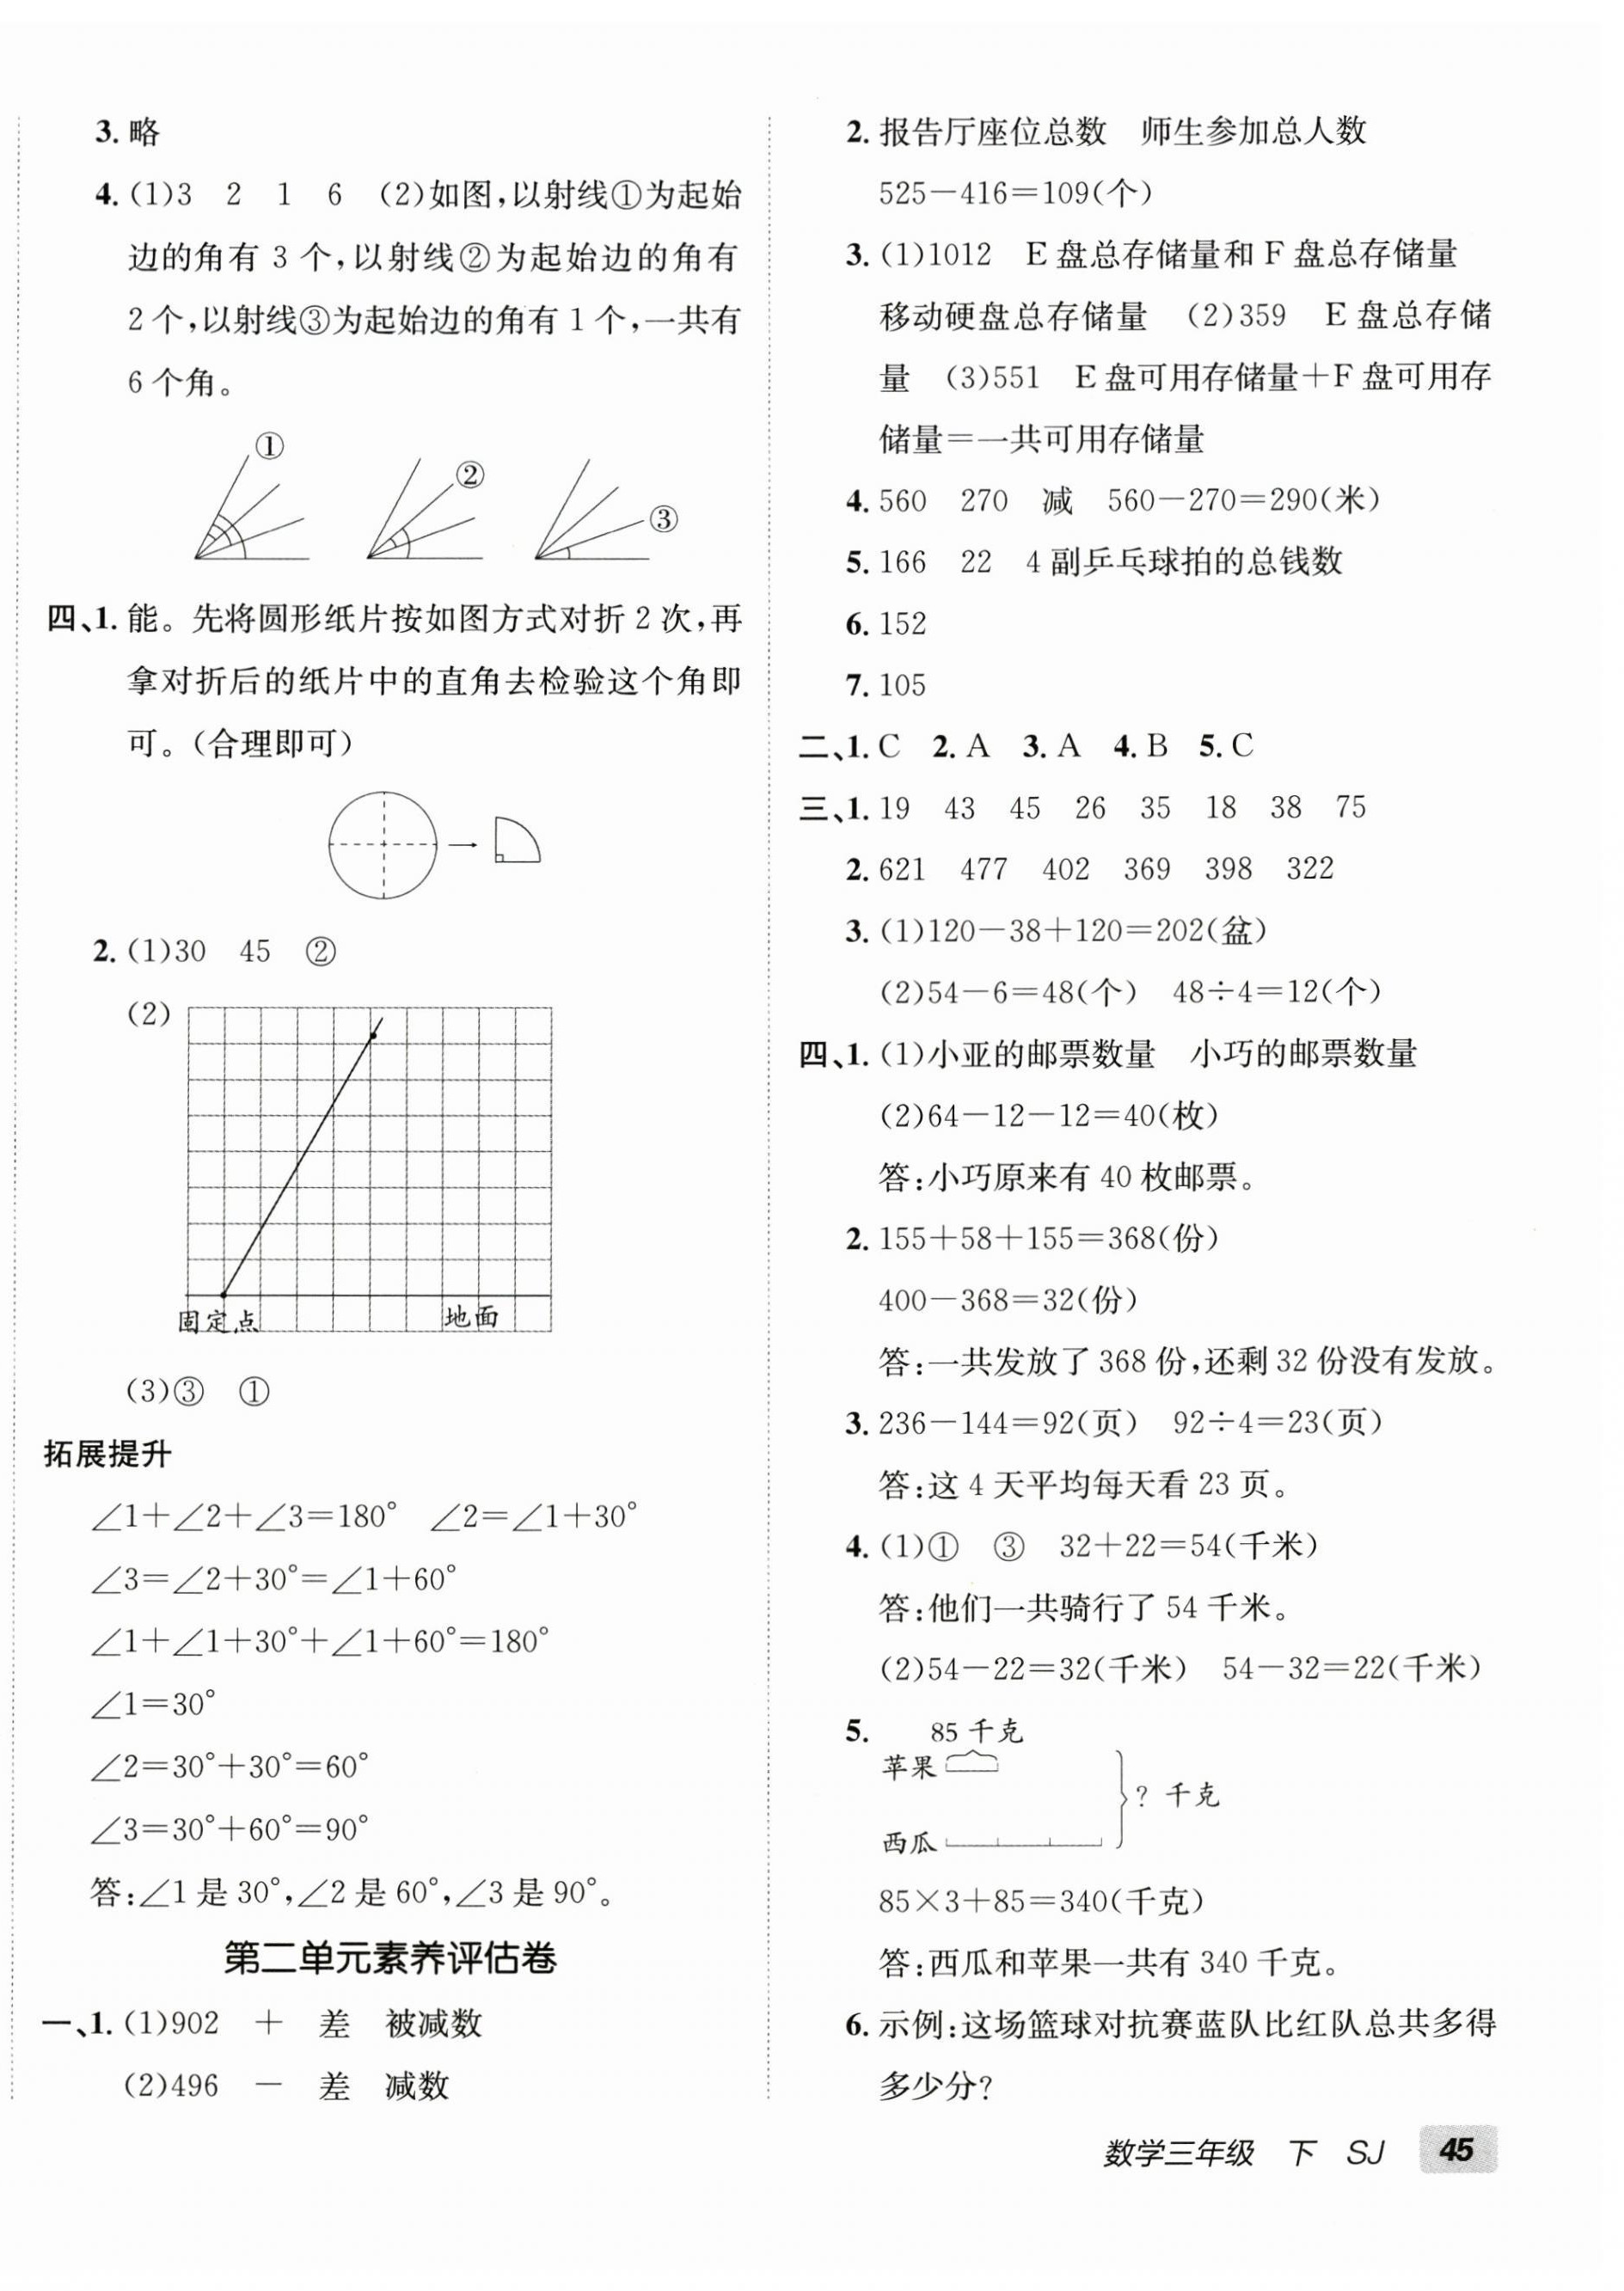 3. 略
4. (1)3 2 1 6 (2)如图,以射线①为起始
边的角有 3 个,以射线②为起始边的角有
2 个,以射线③为起始边的角有 1 个,一共有
6 个角。
① ② ③
四、1. 能。先将圆形纸片按如图方式对折 2 次,再
拿对折后的纸片中的直角去检验这个角即
可。(合理即可)
2. (1)30 45 ②
(2)
固定点 地面
(3)③ ①
拓展提升
∠1+∠2+∠3=180° ∠2=∠1+30°
∠3=∠2+30°=∠1+60°
∠1+∠1+30°+∠1+60°=180°
∠1=30°
∠2=30°+30°=60°
∠3=30°+60°=90°
答:∠1 是 30°,∠2 是 60°,∠3 是 90°。
第二单元素养评估卷
一、1. (1)902 + 差 被减数
(2)496 - 差 减数
2. 报告厅座位总数 师生参加总人数
525-416=109(个)
3. (1)1012 E 盘总存储量和 F 盘总存储量
移动硬盘总存储量 (2)359 E 盘总存储
量 (3)551 E 盘可用存储量+F 盘可用存
储量=一共可用存储量
4. 560 270 减 560-270=290(米)
5. 166 22 4 副乒乓球拍的总钱数
6. 152
7. 105
二、1. C 2. A 3. A 4. B 5. C
三、1. 19 43 45 26 35 18 38 75
2. 621 477 402 369 398 322
3. (1)120-38+120=202(盆)
(2)54-6=48(个) 48÷4=12(个)
四、1. (1)小亚的邮票数量 小巧的邮票数量
(2)64-12-12=40(枚)
答:小巧原来有 40 枚邮票。
2. 155+58+155=368(份)
400-368=32(份)
答:一共发放了 368 份,还剩 32 份没有发放。
3. 236-144=92(页) 92÷4=23(页)
答:这 4 天平均每天看 23 页。
4. (1)① ③ 32+22=54(千米)
答:他们一共骑行了 54 千米。
(2)54-22=32(千米) 54-32=22(千米)
5. 85 千克
苹果
? 千克
西瓜
85×3+85=340(千克)
答:西瓜和苹果一共有 340 千克。
6. 示例:这场篮球对抗赛蓝队比红队总共多得
多少分?
数学三年级 下 SJ 45